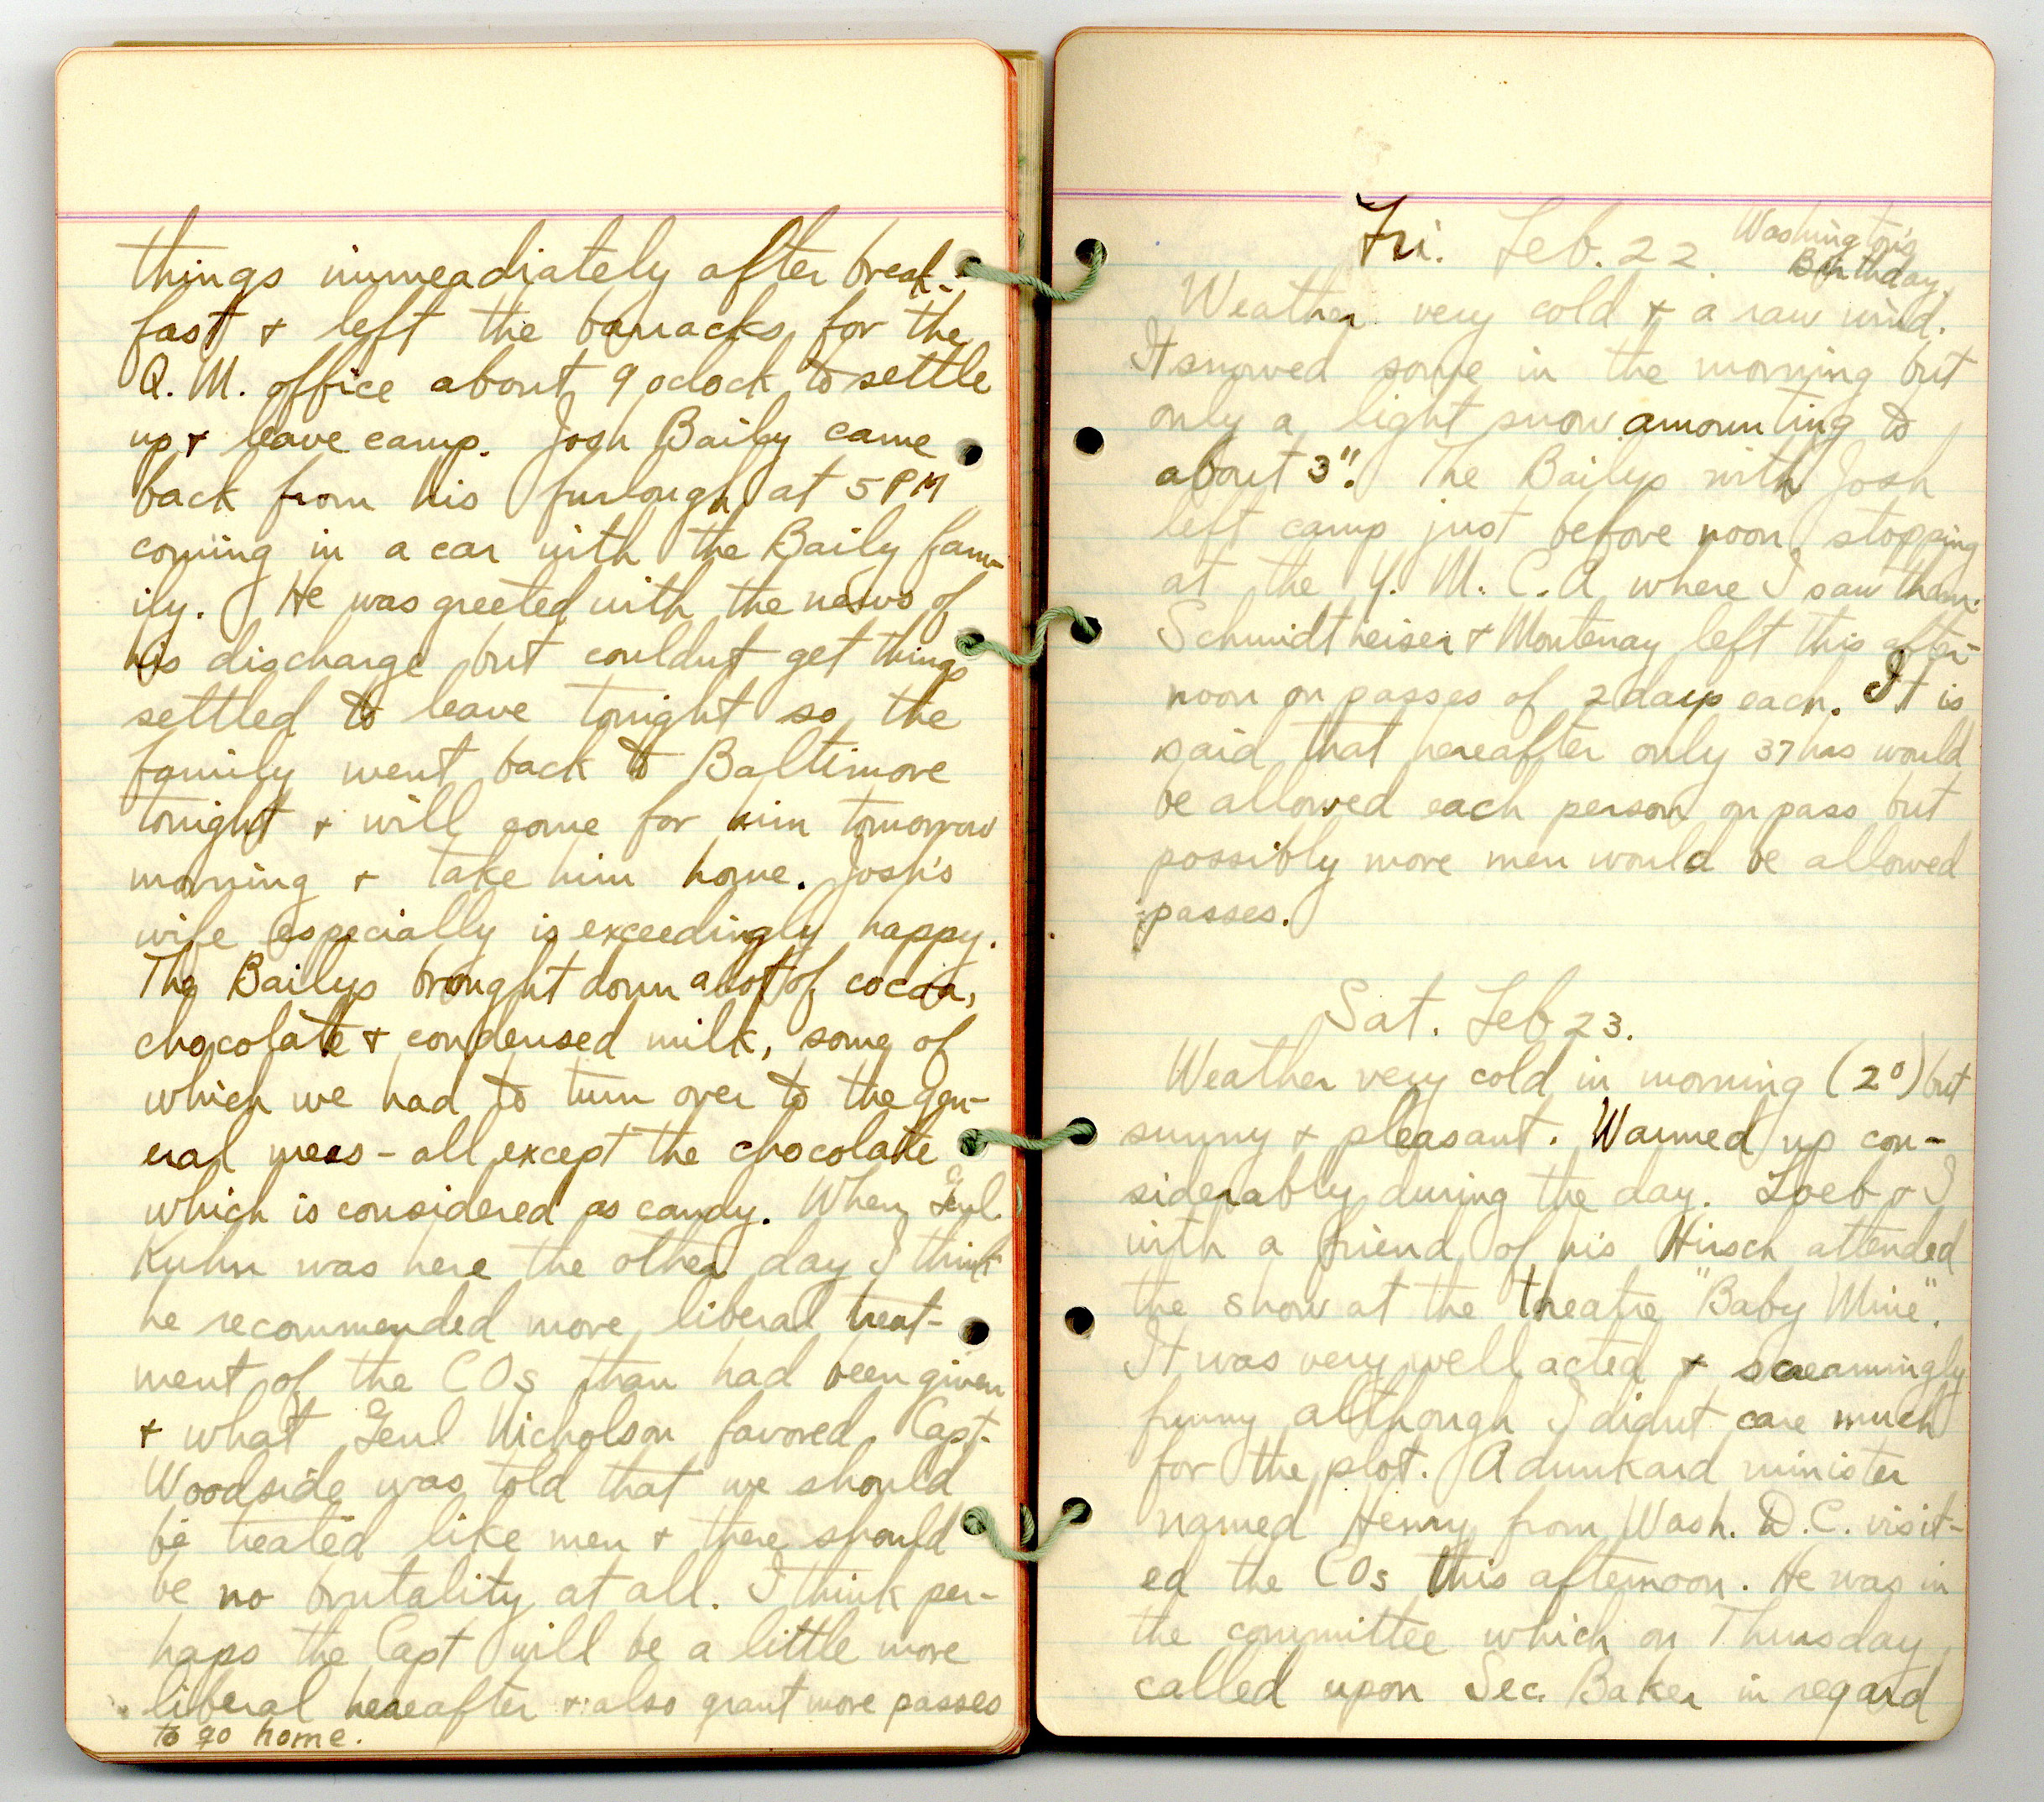 things immeadiately after break-
fast + left the barracks for the
Q. M. office about 9 oclock to settle
up + leave camp. Josh Baily came
back from his furlough at 5 PM
coming in a car with the Baily fam-
ily. He was greeted with the news of
his discharge but couldnt get things
settled to leave tonight so the
family went back to Baltimore
tonight + will come for him tomorrow
morning + take him home. Josh's
wife especially is exceedingly happy.
The Bailys brought down a lot of cocoa,
chocolate + condensed milk, some of
which we had to turn over to the gen-
eral mess - all except the chocolate
which is considered as candy. When Genl
Kuhn was here the other day I think
he recommended more liberal treat-
ment of the COs than had been given
+ what Genl Nicholson favored. Capt.
Woodside was told that we should
be treated like men + there should
be no brutality at all. I think per-
haps the Capt will be a little more
liberal hereafter + also grant more passes
to go home.
Fri. Feb. 22. Washington's
Birthday.
Weather very cold + a raw wind.
It snowed some in the morning but
only a light snow amounting to
about 3". The Bailys with Josh
left camp just before noon stopping
at the Y. M. C. A where I saw them.
Schmidtheiser + Montenay left this after-
noon on passes of 2 days each. It is
said that hereafter only 37 hrs would
be allowed each person on pass but
possibly more men would be allowed
passes.
Sat. Feb 23.
Weather very cold in morning (2°) but
sunny + pleasant. Warmed up con-
siderably during the day. Loeb + I
with a friend of his Hirsch attended
the show at the theatre "Baby Mine".
It was very well acted + screamingly
funny although I didnt care much
for the plot. A dunkard minister
named Henry from Wash. D.C. visit-
ed the COs this afternoon. He was in
the committee which on Thursday
called upon Sec. Baker in regard